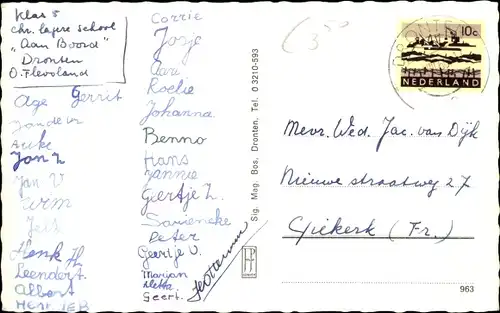 Klas 5
chr. lagere school
"Aan Boord"
Dronten
O. Flevoland
Age Gerrit
Jan de W
Auke
Jan L
Jan V
Wim
Jelt
Henk H.
Leendert.
Albert
Corrie
Josje
Roelie
Johanna.
Benno
Hans
Jannie
Geertje L.
Peter
Geertje V.
Marjan
Metta
Geert.
Sig. Mag. Bos. Dronten. Tel. 0 3210-593
DRONTEN
10c
NEDERLAND
Mevr. Wed. Jac. van Dijk
Nieuwe straatweg 27
Giekerk (Fr.)
963